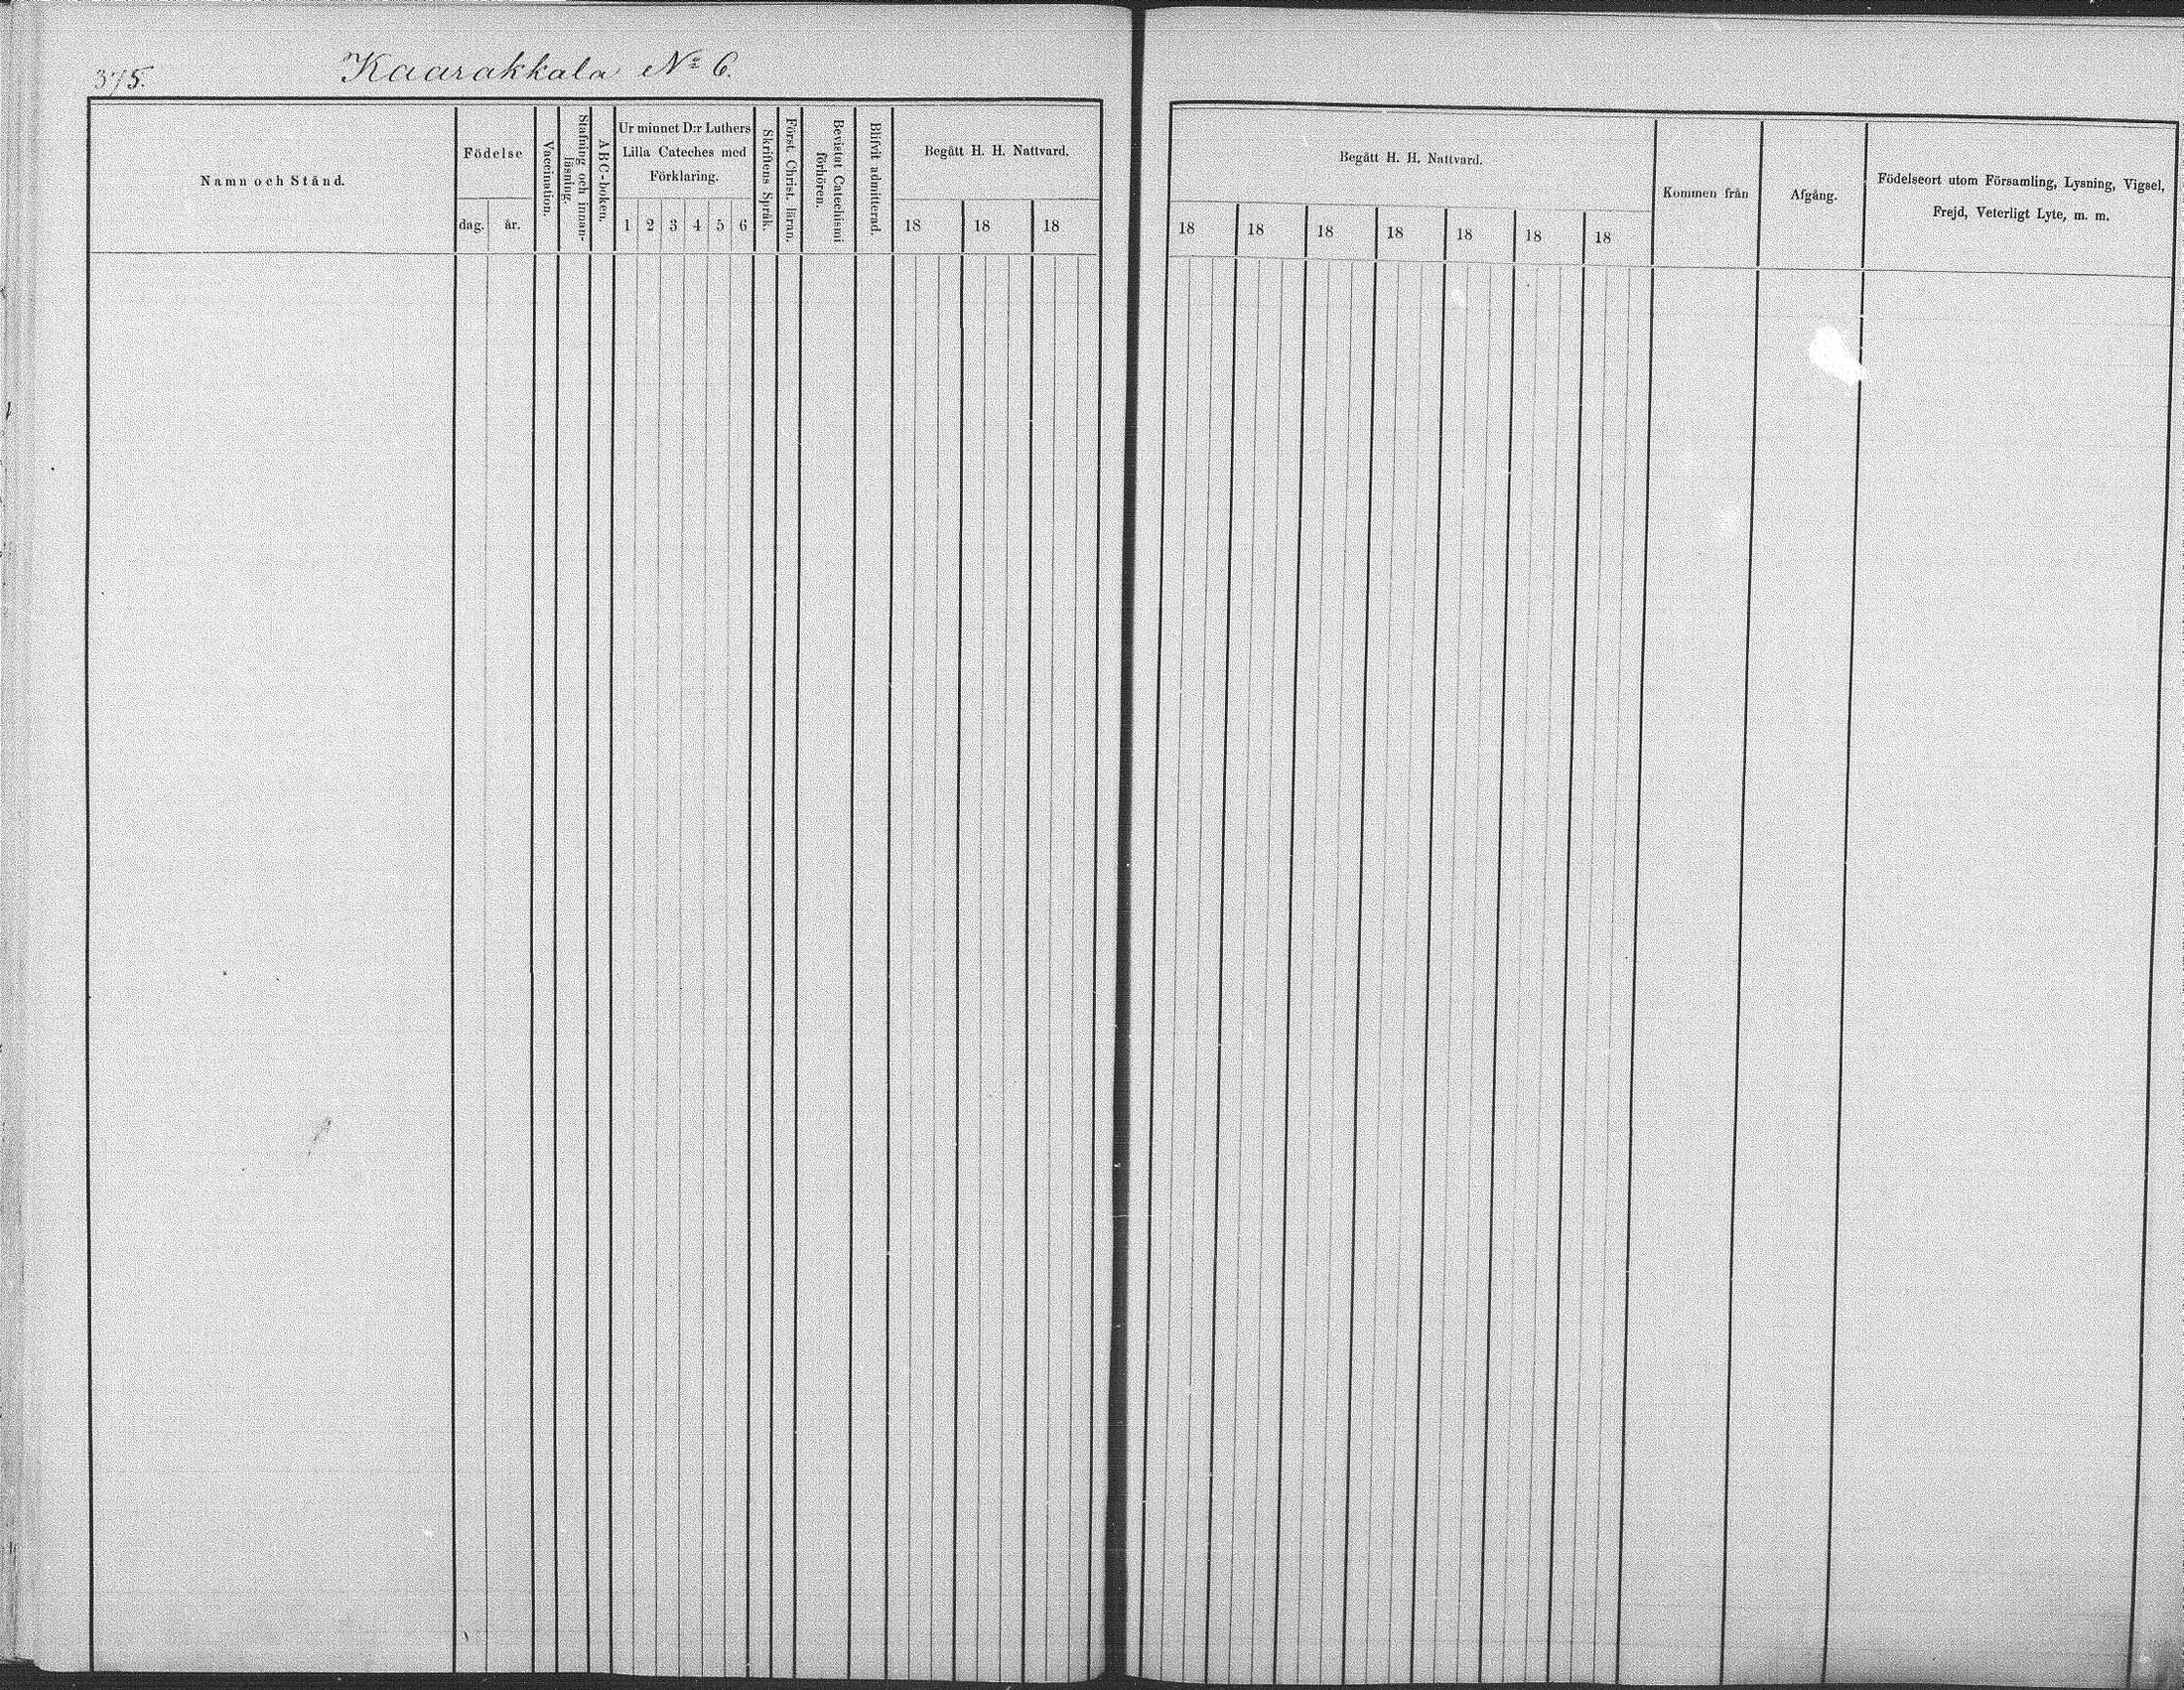 375.
Kaarakkala № 6.
Namn och Stånd.
Födelse
dag.
år.
Vaccination.
Stafning och innan-
läsning.
ABC-boken.
Ur minnet D:r Luthers
Lilla Cateches med
Förklaring.
1 2 3 4 5 6
Skriftens Språk.
Först. Christ. läran.
Bevistat Catechismi
förhören.
Blifvit admitterad.
Begått H. H. Nattvard.
18 18 18
Begått H. H. Nattvard.
18 18 18 18 18 18 18
Kommen från
Afgång.
Födelseort utom Församling, Lysning, Vigsel,
Frejd, Veterligt Lyte, m. m.